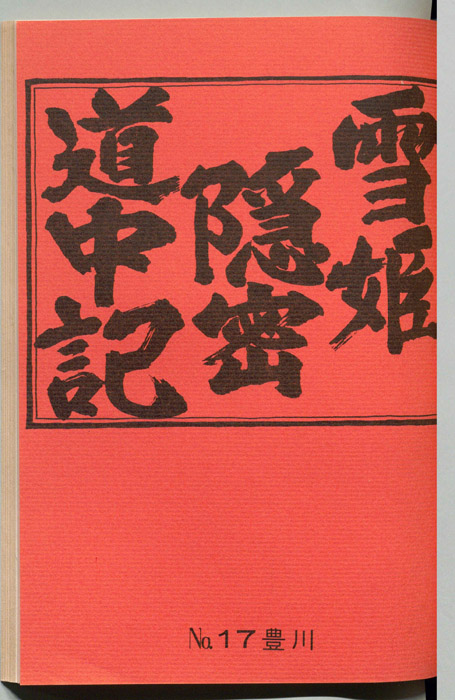 雪姫
隠密
道中記
No.17豊川